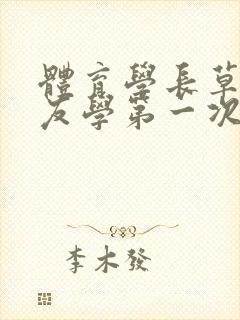 體育學長草
友學第一次
李木發